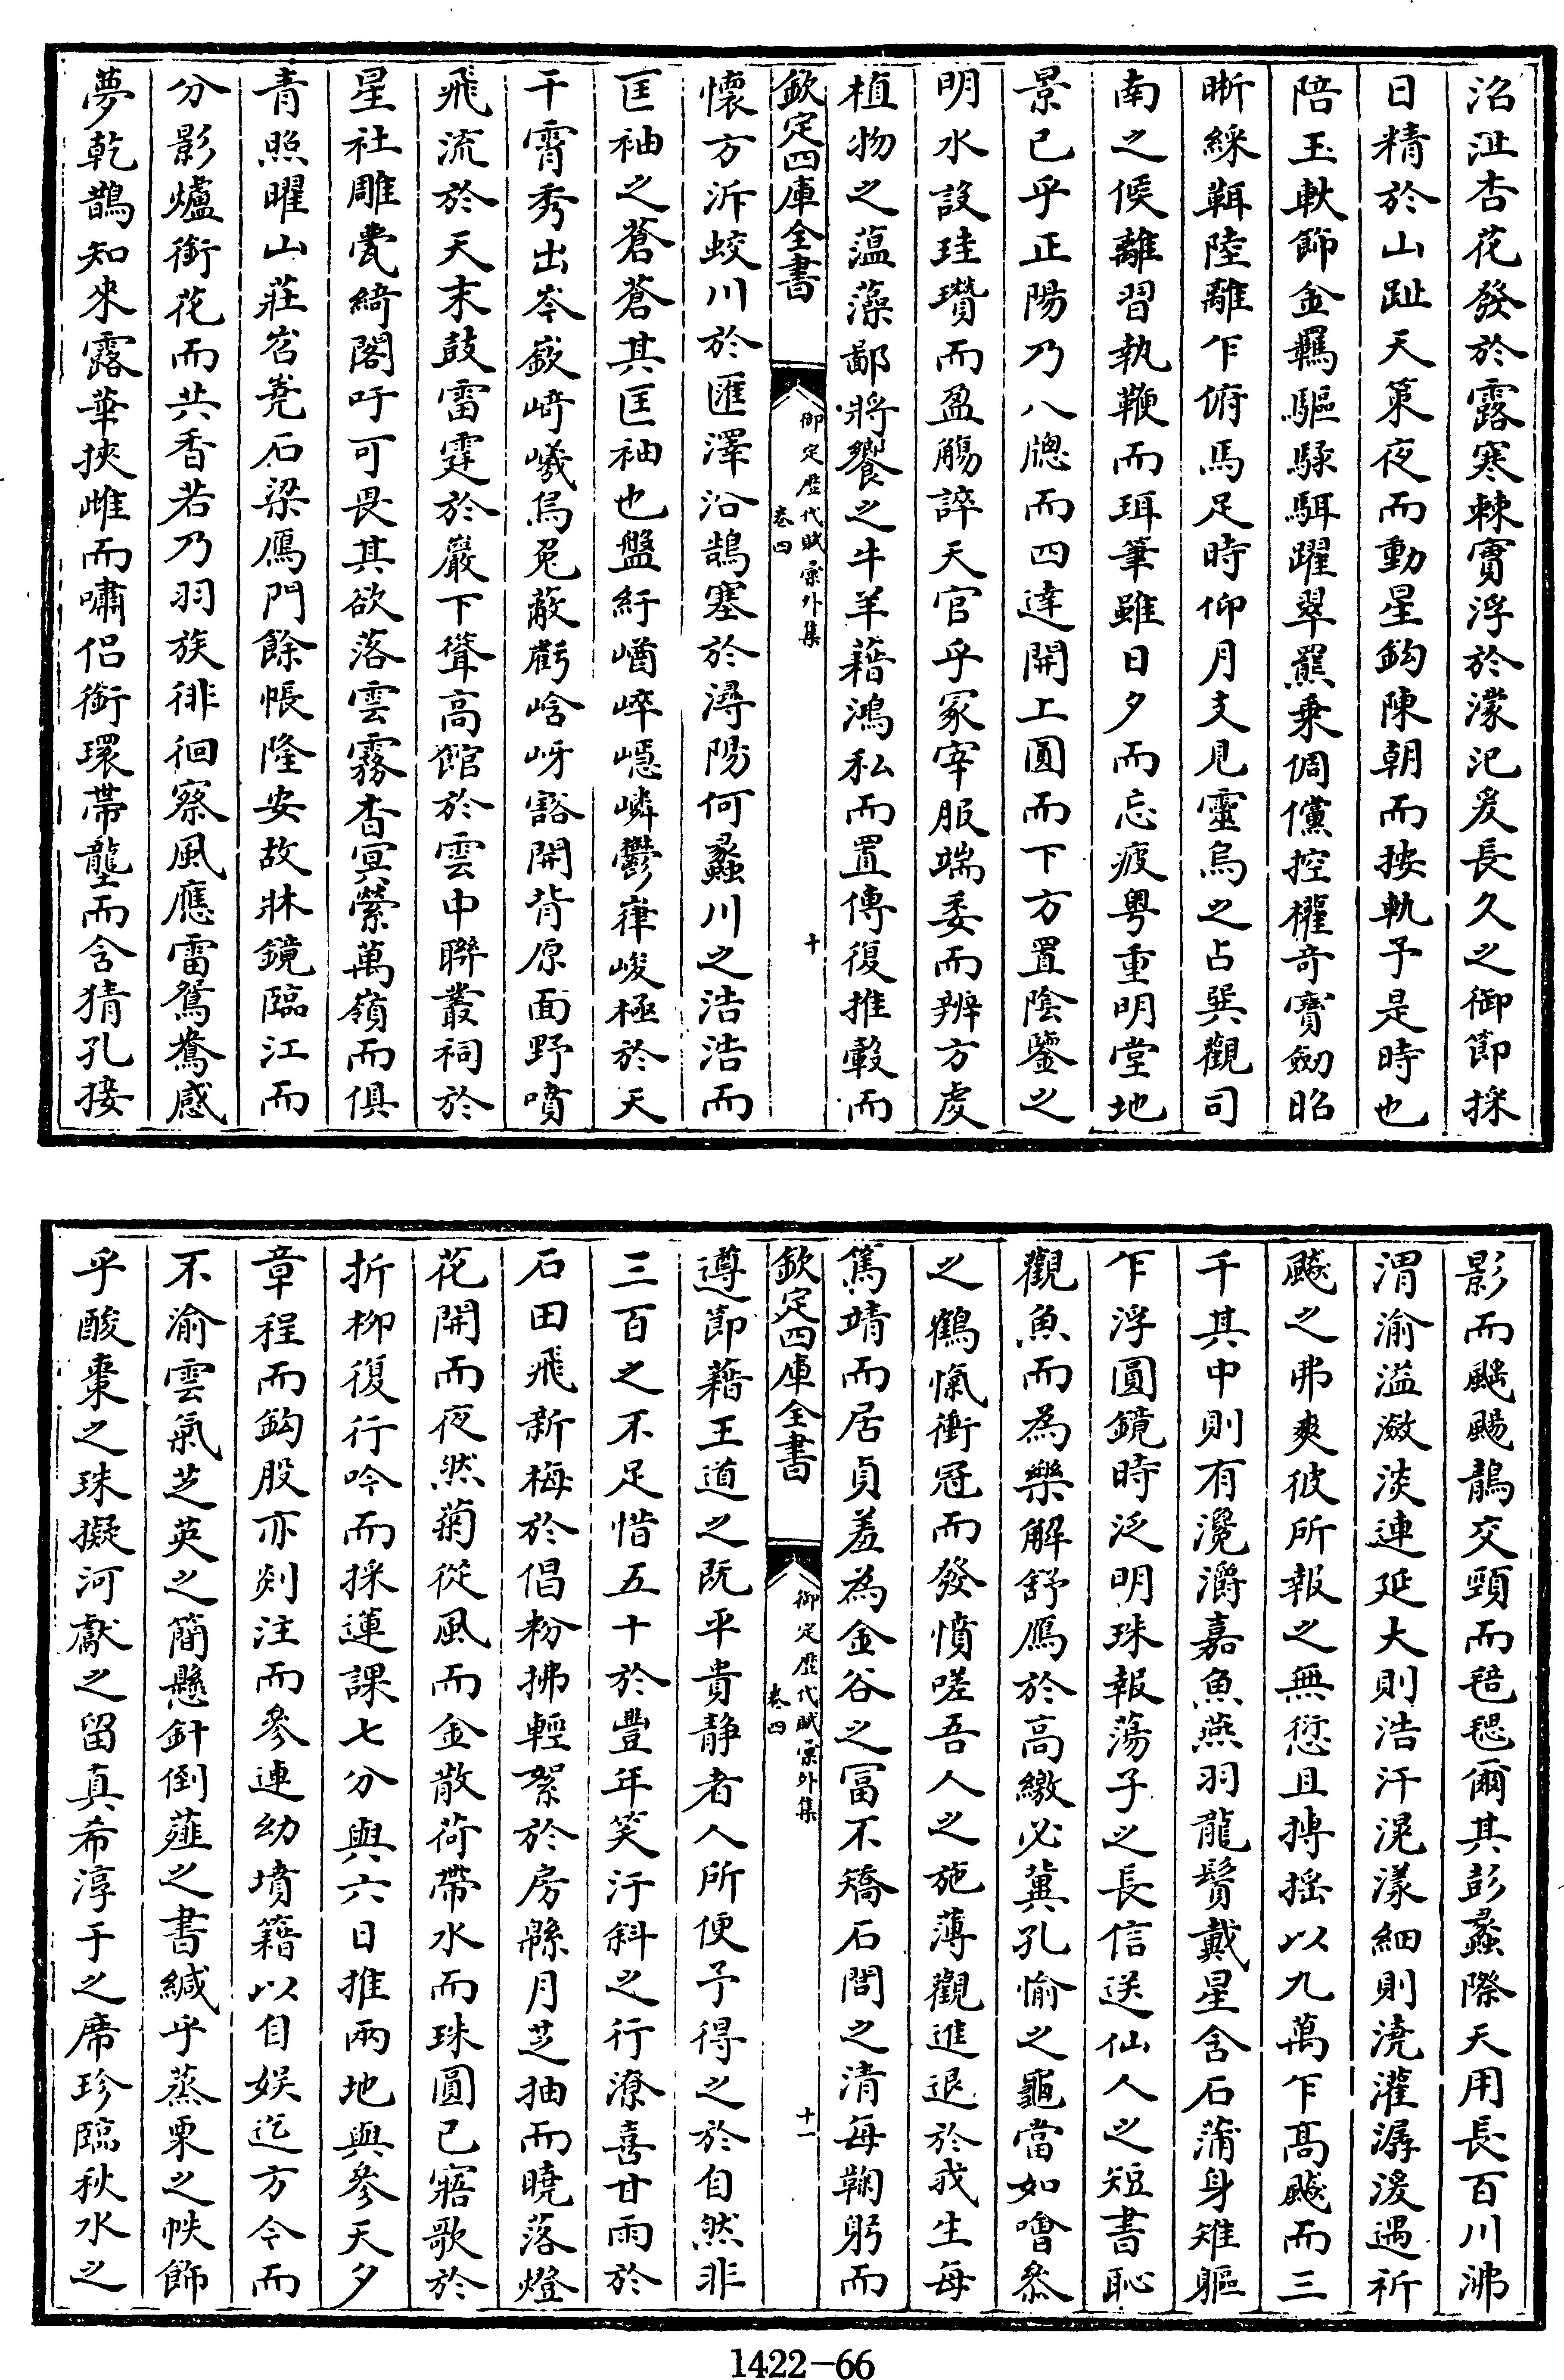 沼沚杏花發於露寒棘實浮於濛汜爰長久之御節採
日精於山趾天策夜而動星鈎陳朝而按軌予是時也
陪玉軑飾金羈驅騄駬躍翠羆乗倜儻控櫂奇寳劒昭
晣綵鞙陸離乍俯馬足時仰月支見靈烏之占巽觀司
南之候離習執鞭而珥筆雖日夕而忘疲粤重明堂地
景已乎正陽乃八牕而四達開上圓而下方置陰鑒之
明水設珪瓚而盈觴誶天官乎冢宰服端委而辨方虔
植物之薀藻鄙將饗之牛羊藉鴻私而置傳復推轂而
欽定四庫全書
御定歴代賦彚外集
卷四
十
懷方泝蛟川於匯澤沿鵠塞於潯陽何蠡川之浩浩而
匡袖之蒼蒼其匡袖也盤紆崷崪嶾嶙鬱嵂峻極於天
干霄秀出岑嶔崎嶬烏兎蔽虧㟏岈豁開背原面野噴
飛流於天末鼓雷霆於巖下聳高館於雲中聯叢祠於
星社雕甍綺閣吁可畏其欲落雲霧杳冥縈萬嶺而俱
青照曜山莊岧嶤石梁鴈門餘帳隆安故牀鏡臨江而
分影爐銜花而共香若乃羽族徘徊察風應雷鴛鴦感
夢乾鵲知來露華挾雌而嘯侣銜環帯壟而含猜孔接
影而䬃颺鵲交頸而毰毸爾其彭蠡際天用長百川沸
渭渝溢澉淡連延大則浩汗滉漾細則澆灌潺湲遇祈
飈之弗爽彼所報之無愆且搏摇以九萬乍髙飈而三
千其中則有瀺灂嘉魚燕羽龍鬢戴星含石蒲身雉軀
乍浮圓鏡時泛明珠報蕩子之長信送仙人之短書恥
觀魚而為樂解舒鴈於高繳必冀孔愉之龜當如噲參
之鶴愾衝冠而發憤嗟吾人之施薄觀進退於我生每
篤靖而居貞羞為金谷之冨不矯石閭之清每鞠躬而
欽定四庫全書
御定歴代賦彚外集
卷四
十一
遵節藉王道之既平貴静者人所便予得之於自然非
三百之不足惜五十於豐年笑汙斜之行潦喜甘雨於
石田飛新梅於倡粉拂輕絮於房緜月芝抽而曉落燈
花開而夜然菊從風而金散荷帶水而珠圓已寤歌於
折柳復行吟而採蓮課七分與六日推兩地與參天夕
章程而鈎股亦剡注而參連幼墳籍以自娱迄方今而
不渝雲氣芝英之簡懸針倒薤之書緘乎蒸栗之帙飾
乎酸棗之珠擬河獻之留真希淳于之席珍臨秋水之
1422-66